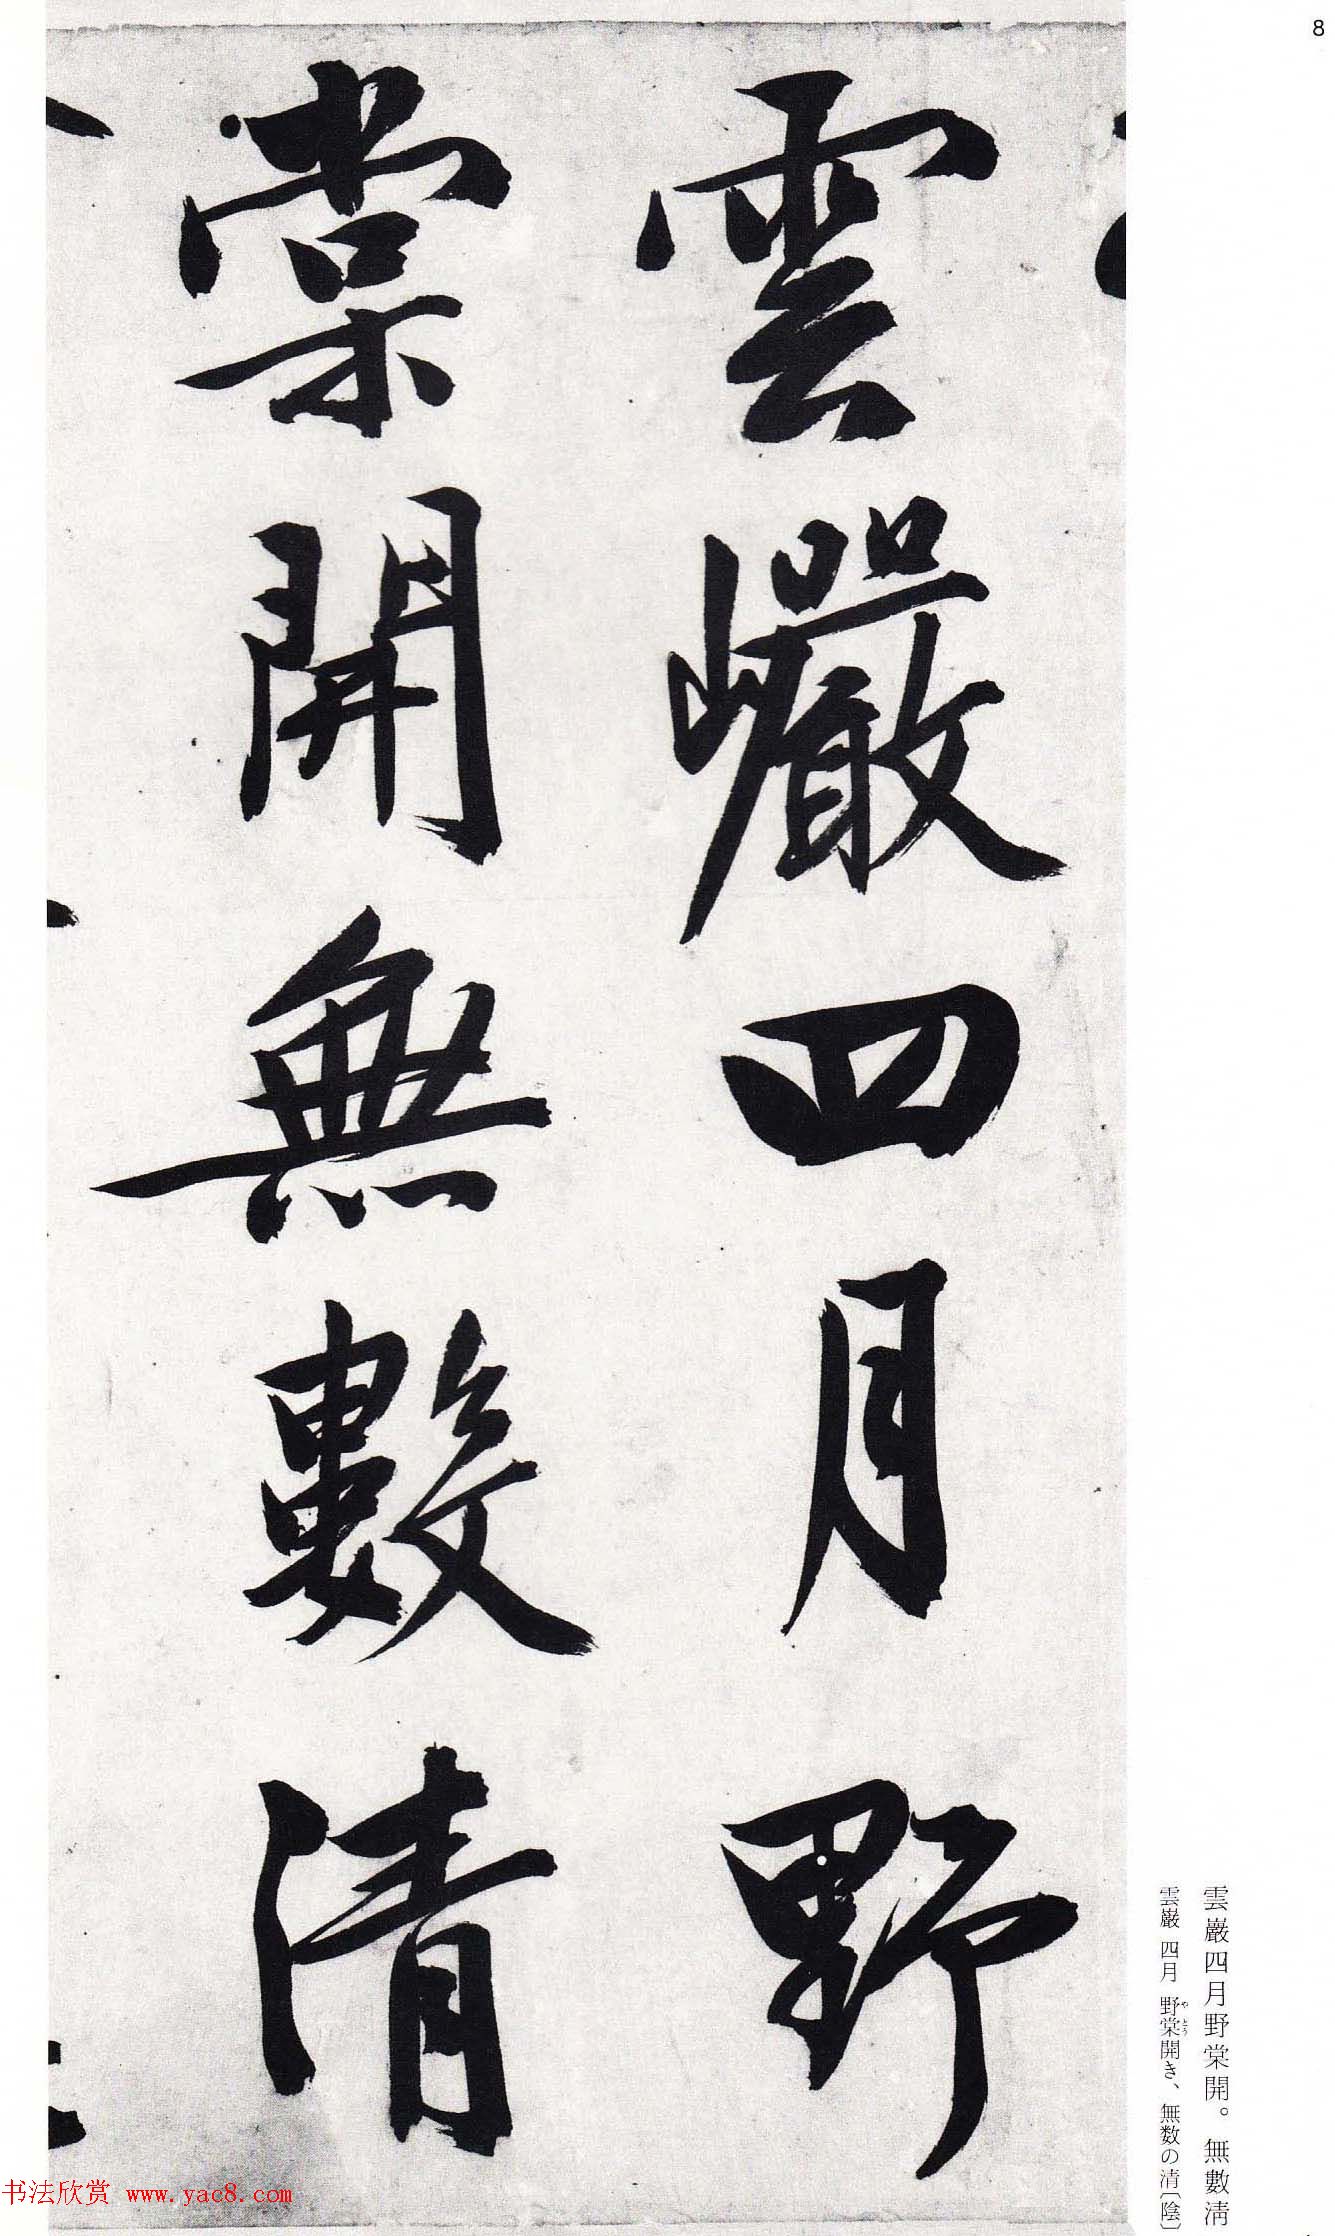 8
雲巖四月野
棠開無數清
雲巖四月野棠開。無數清
雲巌 四月 野棠開き、無数の清〔陰〕
やとう
书法欣赏 www.yac8.com